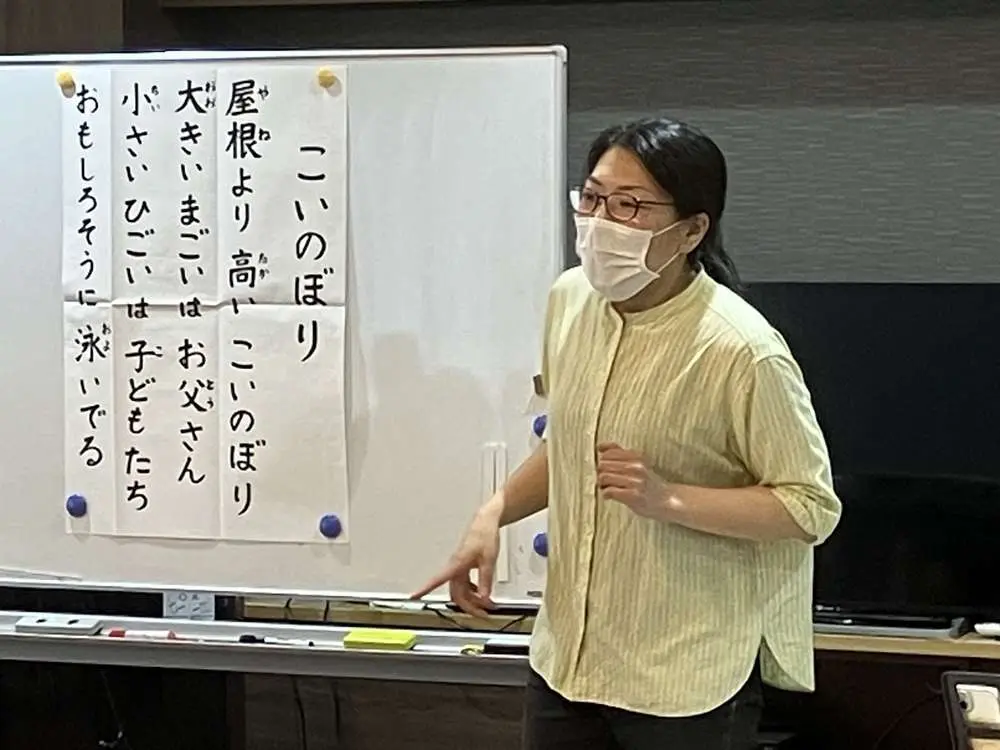 こいのぼり
屋根より 高い こいのぼり
大きい まごいは お父さん
小さい ひごいは 子どもたち
おもしろそうに 泳いでる